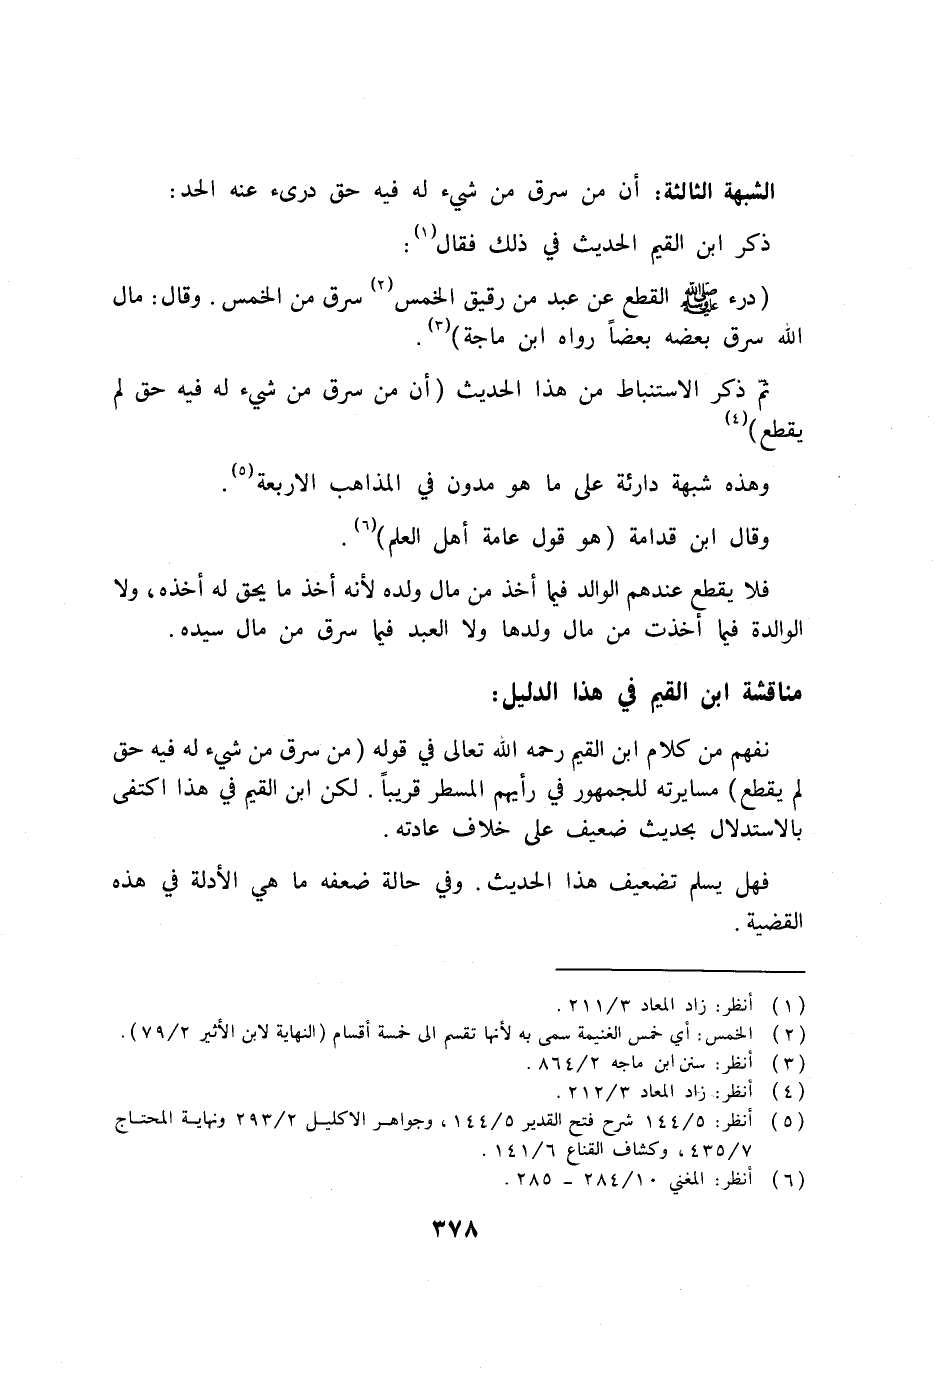 الشبهة الثالثة: أن من سرق من شيء له فيه حق درىء عنه الحد:
ذكر ابن القيم الحديث في ذلك فقال(١):
(درء ﷺ القطع عن عبد من رقيق الخمس(٢) سرق من الخمس. وقال: مال
الله سرق بعضه بعضاً رواه ابن ماجة)(٣).
ثمّ ذكر الاستنباط من هذا الحديث (أن من سرق من شيء له فيه حق لم
يقطع)(٤)
وهذه شبهة دارئة على ما هو مدون في المذاهب الاربعة(٥).
وقال ابن قدامة (هو قول عامة أهل العلم)(٦).
فلا يقطع عندهم الوالد فيما أخذ من مال ولده لأنه أخذ ما يحق له أخذه، ولا
الوالدة فيما أخذت من مال ولدها ولا العبد فيما سرق من مال سيده.
مناقشة ابن القيم في هذا الدليل:
نفهم من كلام ابن القيم رحمه الله تعالى في قوله (من سرق من شيء له فيه حق
لم يقطع) مسايرته للجمهور في رأيهم المسطر قريباً. لكن ابن القيم في هذا اكتفى
بالاستدلال بحديث ضعيف على خلاف عادته.
فهل يسلم تضعيف هذا الحديث. وفي حالة ضعفه ما هي الأدلة في هذه
القضية.
(١) أنظر: زاد المعاد ٢١١/٣.
(٢) الخمس: أي خمس الغنيمة سمى به لأنها تقسم الى خمسة أقسام (النهاية لابن الأثير ٧٩/٢).
(٣) أنظر: سنن ابن ماجه ٨٦٤/٢.
(٤) أنظر: زاد المعاد ٢١٢/٣.
(٥) أنظر: ١٤٤/٥ شرح فتح القدير ١٤٤/٥، وجواهر الاكليل ٢٩٣/٢ ونهاية المحتاج
٤٣٥/٧، وكشاف القناع ١٤١/٦.
(٦) أنظر: المغني ٢٨٤/١٠ - ٢٨٥.
٣٧٨